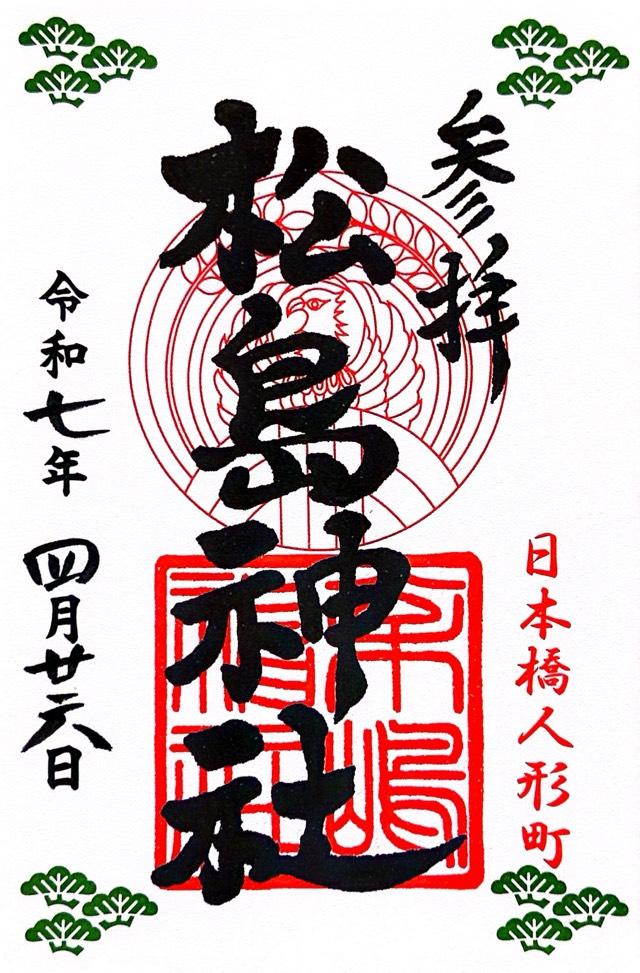 参拝
日本橋人形町
松島神社
令和七年 四月廿六日